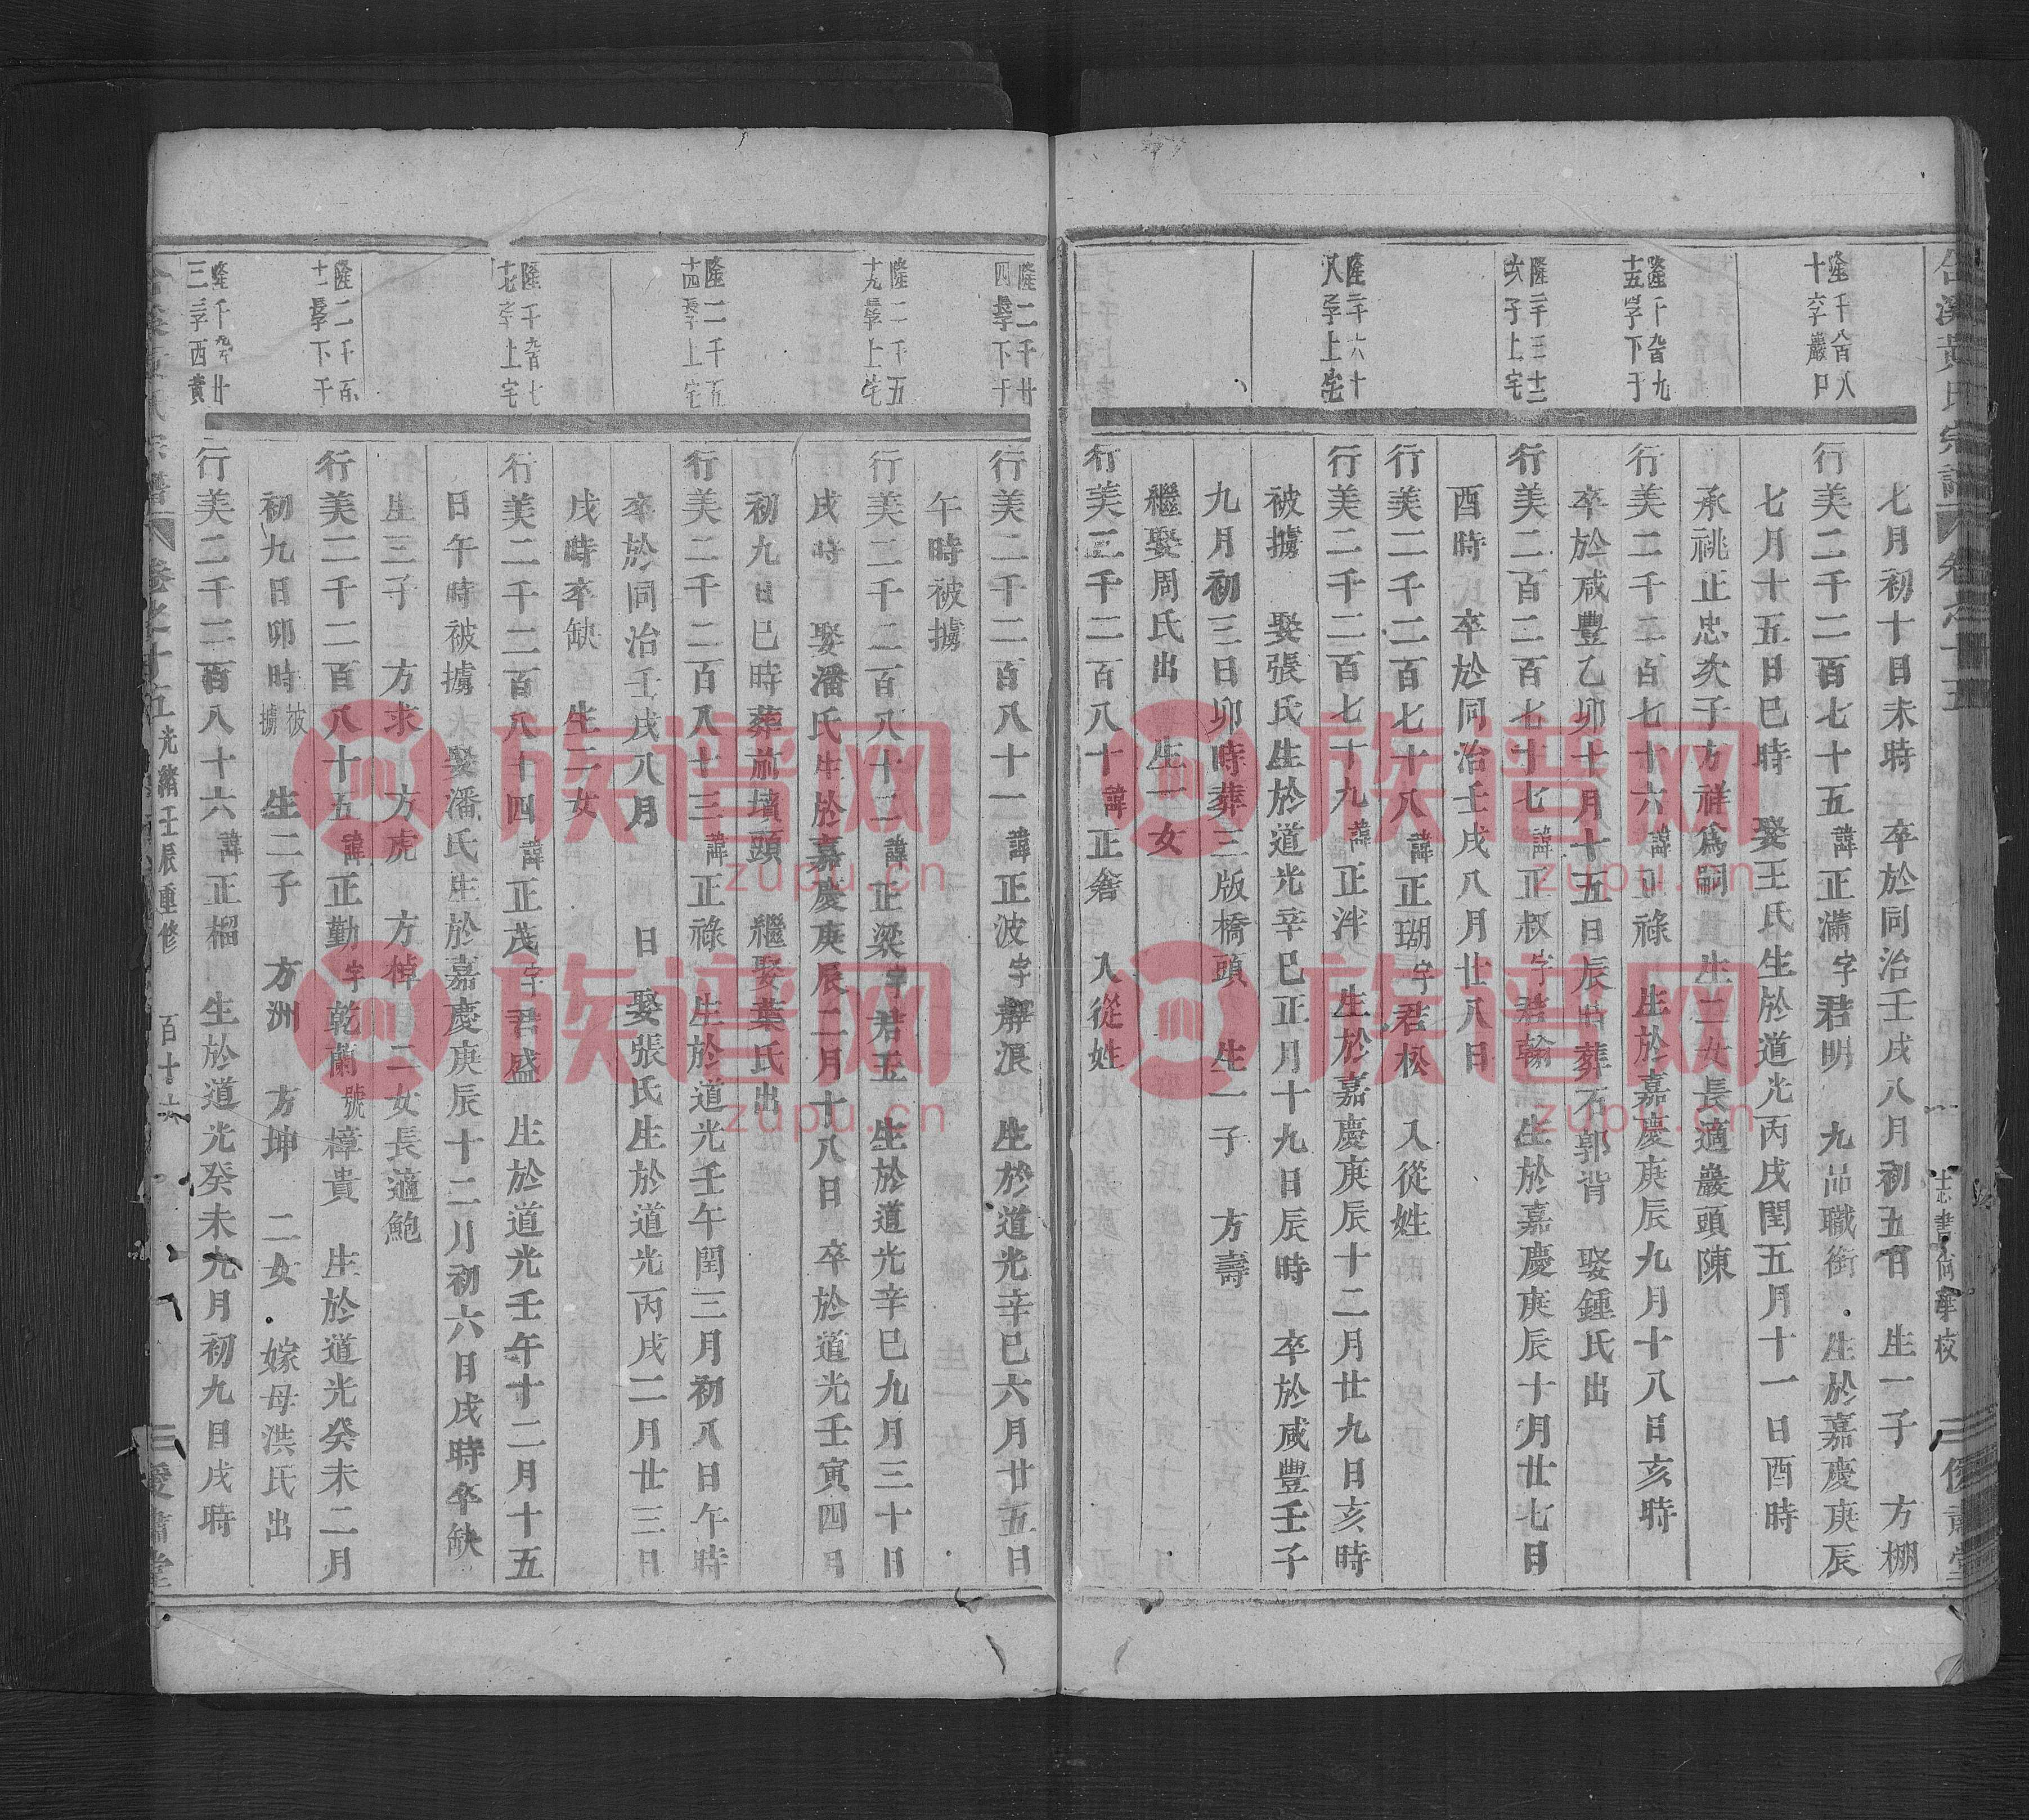 黃氏宗譜
卷之十五
志書尚華校
七月初十日未時 卒於同治壬戌八月初五日 生一子 方棚
隆千八百八十六字巖口
行美二千二百七十五諱正滿字君明 九品職銜 生於嘉慶庚辰
七月十五日巳時 娶王氏生於道光丙戌閏五月十一日酉時
承祧正忠次子方祥爲嗣 生二女長適巖頭陳
隆千九百九十五
行美二千二百七十六諱正祿 生於嘉慶庚辰九月十八日亥時
卒於咸豐乙卯十月十五日辰時葬石郭背 娶鍾氏出
行美二百二百七十七諱正叔字君翰 生於嘉慶庚辰十月廿七日
酉時 卒於同治壬戌八月廿八日
行美二千二百七十八諱正瑚字君松入從姓
行美二千二百七十九諱正泮 生於嘉慶庚辰十二月廿九日亥時
被擄 娶張氏生於道光辛巳正月十九日辰時 卒於咸豐壬子
九月初三日卯時葬三版橋頭 生一子 方壽
繼娶周氏出 生一女
行美二千二百八十諱正奢 入從姓
行美二千二百八十一諱正波字靜浪 生於道光辛巳六月廿五日
午時被擄
行美二千二百八十二諱正梁字君玉 生於道光辛巳九月三十日
戌時 娶潘氏生於嘉慶庚辰二月十八日 卒於道光壬寅四月
初九日巳時葬前墳頭 繼娶葉氏出
行美二千二百八十三諱正祿 生於道光壬午閏三月初八日午時
卒於同治壬戌八月 日 娶張氏生於道光丙戌二月廿三日
戌時卒缺 生二女
行美二千二百八十四諱正茂字君盛 生於道光壬午十二月十五
日午時被擄 娶潘氏生於嘉慶庚辰十二月初六日戌時卒缺
生三子 方求 方虎 方棹 二女長適鮑
行美二千二百八十五諱正勤字乾蘭號樟貴 生於道光癸未二月
初九日卯時被擄 生二子 方洲 方坤 二女 嫁母洪氏出
行美二千二百八十六諱正榴 生於道光癸未九月初九日戌時
卷之十五 光緒壬辰重修 百十六
族谱网
zupu.cn
族谱网
zupu.cn
族谱网
zupu.cn
族谱网
zupu.cn